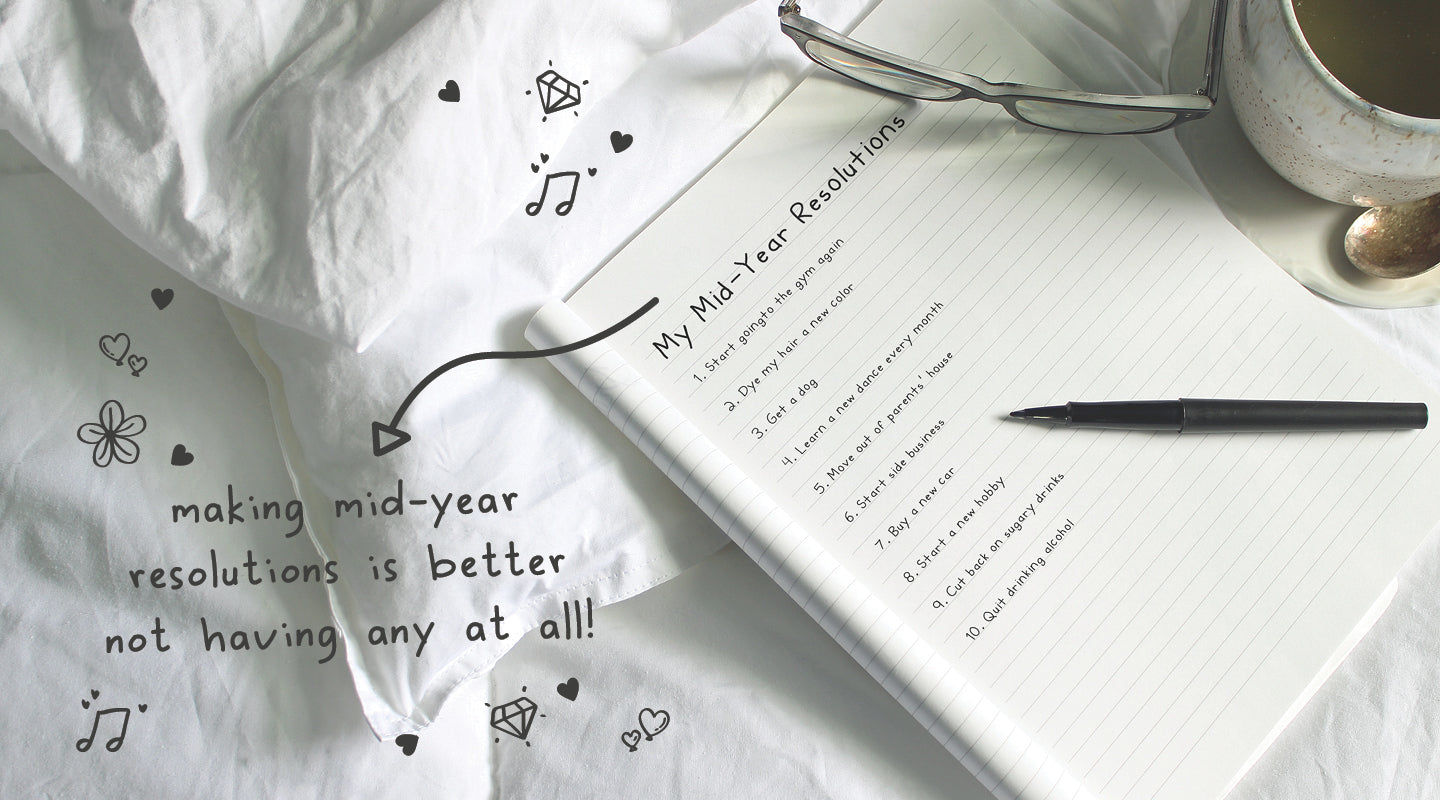 My Mid-Year Resolutions
1. Start goingto the gym again
2. Dye my hair a new color
3. Get a dog
4. Learn a new dance every month
5. Move out of parents' house
6. Start side business
7. Buy a new car
8. Start a new hobby
9. Cut back on sugary drinks
10. Quit drinking alcohol
making mid-year
resolutions is better
not having any at all!